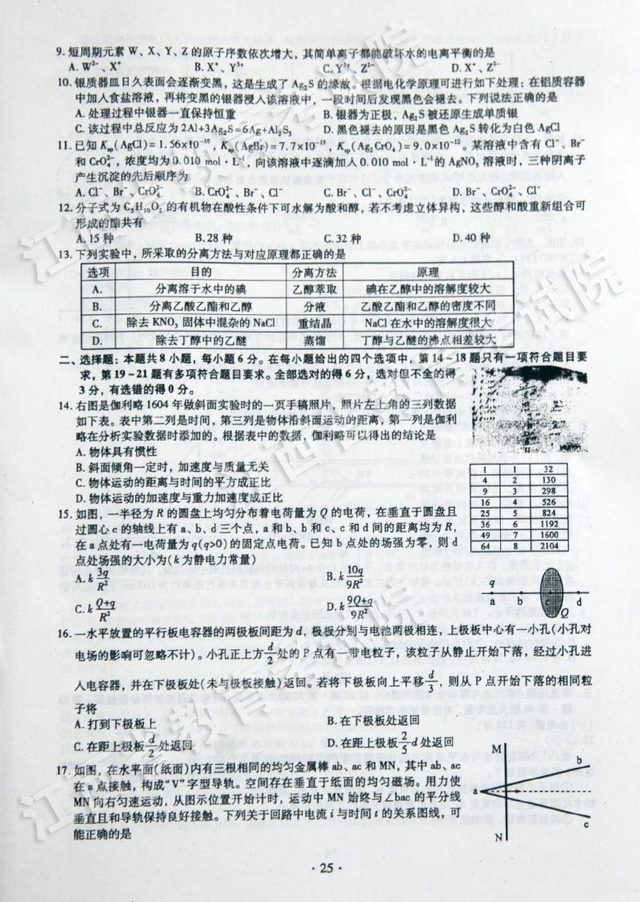 9. 短周期元素W、X、Y、Z的原子序数依次增大，其简单离子都能破坏水的电离平衡的是
A. W²⁻、X⁺ B. X⁺、Y³⁺ C. Y³⁺、Z²⁻ D. X⁺、Z²⁻
10. 银质器皿日久表面会逐渐变黑，这是生成了Ag₂S的缘故。根据电化学原理可进行如下处理：在铝质容器
中加入食盐溶液，再将变黑的银器浸入该溶液中，一段时间后发现黑色会褪去。下列说法正确的是
A. 处理过程中银器一直保持恒重 B. 银器为正极，Ag₂S被还原生成单质银
C. 该过程中总反应为2Al+3Ag₂S=6Ag+Al₂S₃ D. 黑色褪去的原因是黑色Ag₂S转化为白色AgCl
11. 已知Ksp(AgCl)=1.56×10⁻¹⁰，Ksp(AgBr)=7.7×10⁻¹³，Ksp(Ag₂CrO₄)=9.0×10⁻¹²。某溶液中含有Cl⁻、Br⁻
和CrO₄²⁻，浓度均为0.010 mol·L⁻¹，向该溶液中逐滴加入0.010 mol·L⁻¹的AgNO₃溶液时，三种阴离子
产生沉淀的先后顺序为
A. Cl⁻、Br⁻、CrO₄²⁻ B. CrO₄²⁻、Br⁻、Cl⁻ C. Br⁻、Cl⁻、CrO₄²⁻ D. Br⁻、CrO₄²⁻、Cl⁻
12. 分子式为C₅H₁₀O₂的有机物在酸性条件下可水解为酸和醇，若不考虑立体异构，这些醇和酸重新组合可
形成的酯共有
A. 15种 B. 28种 C. 32种 D. 40种
13. 下列实验中，所采取的分离方法与对应原理都正确的是
选项 目的 分离方法 原理
A. 分离溶于水中的碘 乙醇萃取 碘在乙醇中的溶解度较大
B. 分离乙酸乙酯和乙醇 分液 乙酸乙酯和乙醇的密度不同
C. 除去KNO₃固体中混杂的NaCl 重结晶 NaCl在水中的溶解度很大
D. 除去丁醇中的乙醚 蒸馏 丁醇与乙醚的沸点相差较大
二、选择题：本题共8小题，每小题6分。在每小题给出的四个选项中，第14~18题只有一项符合题目要
求，第19~21题有多项符合题目要求。全部选对的得6分，选对但不全的得
3分，有选错的得0分。
14. 右图是伽利略1604年做斜面实验时的一页手稿照片，照片左上角的三列数据
如下表。表中第二列是时间，第三列是物体沿斜面运动的距离，第一列是伽利
略在分析实验数据时添加的。根据表中的数据，伽利略可以得出的结论是
A. 物体具有惯性
B. 斜面倾角一定时，加速度与质量无关
C. 物体运动的距离与时间的平方成正比
D. 物体运动的加速度与重力加速度成正比
1 1 32
4 2 130
9 3 298
16 4 526
25 5 824
36 6 1192
49 7 1600
64 8 2104
15. 如图，一半径为R的圆盘上均匀分布着电荷量为Q的电荷，在垂直于圆盘且
过圆心c的轴线上有a、b、d三个点，a和b、b和c、c和d间的距离均为R，
在a点处有一电荷量为q(q>0)的固定点电荷。已知b点处的场强为零，则d
点处场强的大小为(k为静电力常量)
A. k 3q/R² B. k 10q/9R²
C. k Q+q/R² D. k 9Q+q/9R²
q
a b c d
Q
16. 一水平放置的平行板电容器的两极板间距为d，极板分别与电池两极相连，上极板中心有一小孔(小孔对
电场的影响可忽略不计)。小孔正上方d/2处的P点有一带电粒子，该粒子从静止开始下落，经过小孔进
入电容器，并在下极板处(未与极板接触)返回。若将下极板向上平移d/3，则从P点开始下落的相同粒
子将
A. 打到下极板上 B. 在下极板处返回
C. 在距上极板d/2处返回 D. 在距上极板2/5 d处返回
17. 如图，在水平面(纸面)内有三根相同的均匀金属棒ab、ac和MN，其中ab、ac
在a点接触，构成“V”字型导轨。空间存在垂直于纸面的均匀磁场。用力使
MN向右匀速运动，从图示位置开始计时，运动中MN始终与∠bac的平分线
垂直且和导轨保持良好接触。下列关于回路中电流i与时间t的关系图线，可
能正确的是
M
b
a
c
N
· 25 ·
江西省教育考试院
江西省教育考试院
江西省教育考试院